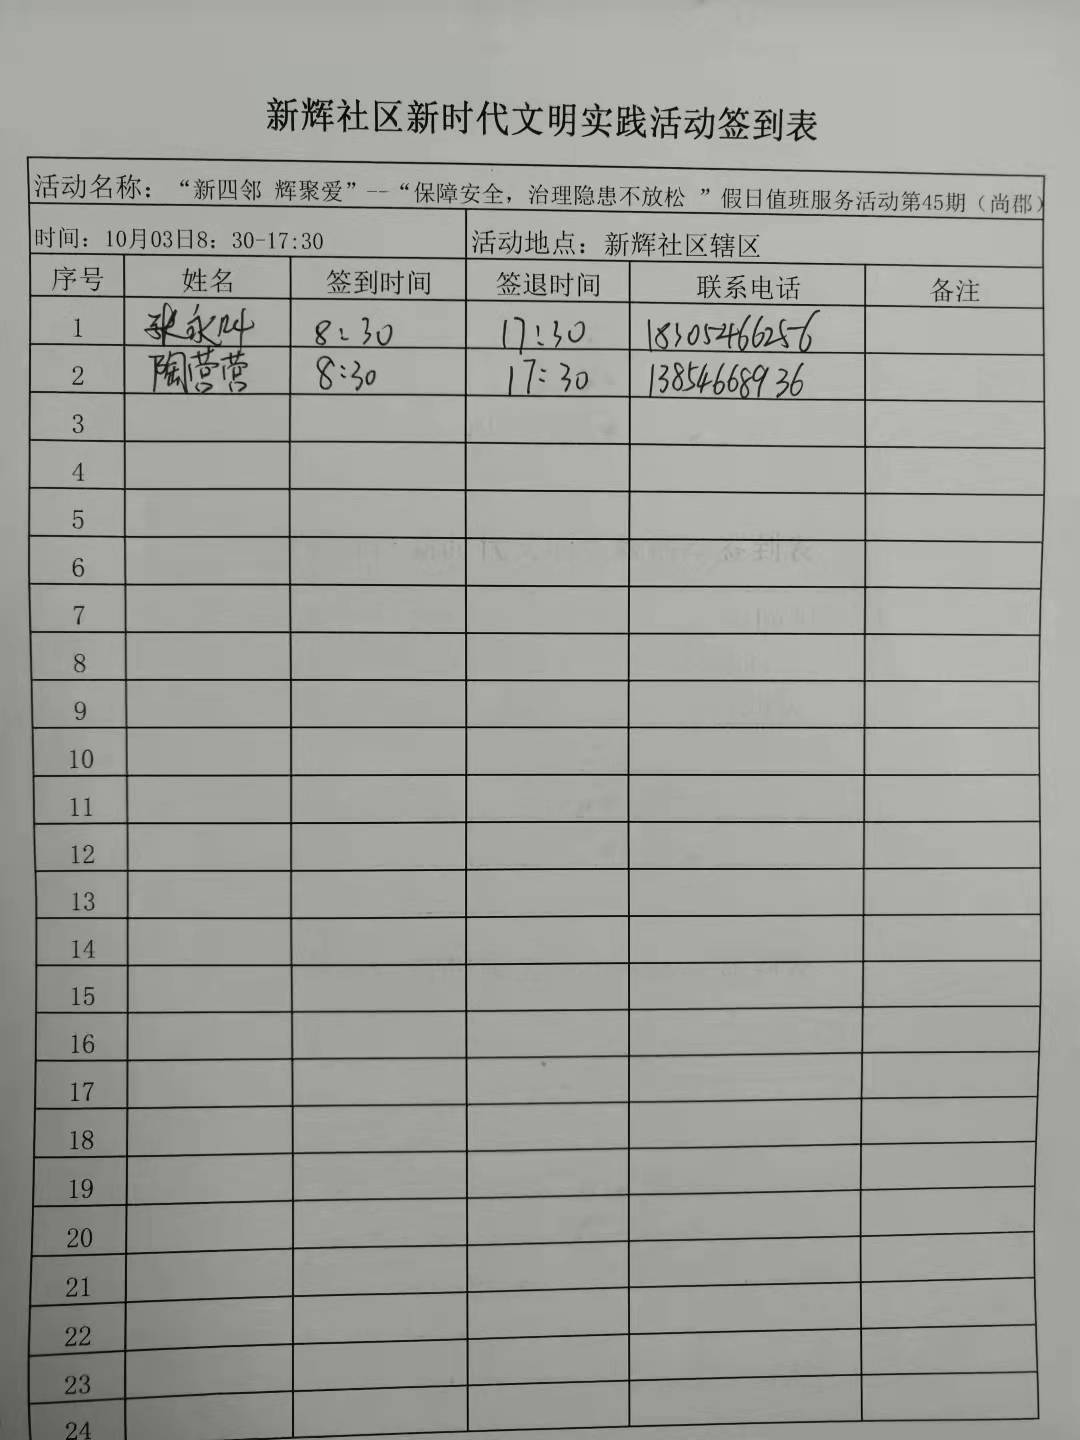 新辉社区新时代文明实践活动签到表
活动名称：“新四邻 辉聚爱”--“保障安全，治理隐患不放松 ”假日值班服务活动第45期（尚郡）
时间：10月03日8：30-17:30 活动地点：新辉社区辖区
序号 姓名 签到时间 签退时间 联系电话 备注
1 张永 8:30 17:30 18305466256
2 陶营营 8:30 17:30 13854668936
3
4
5
6
7
8
9
10
11
12
13
14
15
16
17
18
19
20
21
22
23
24